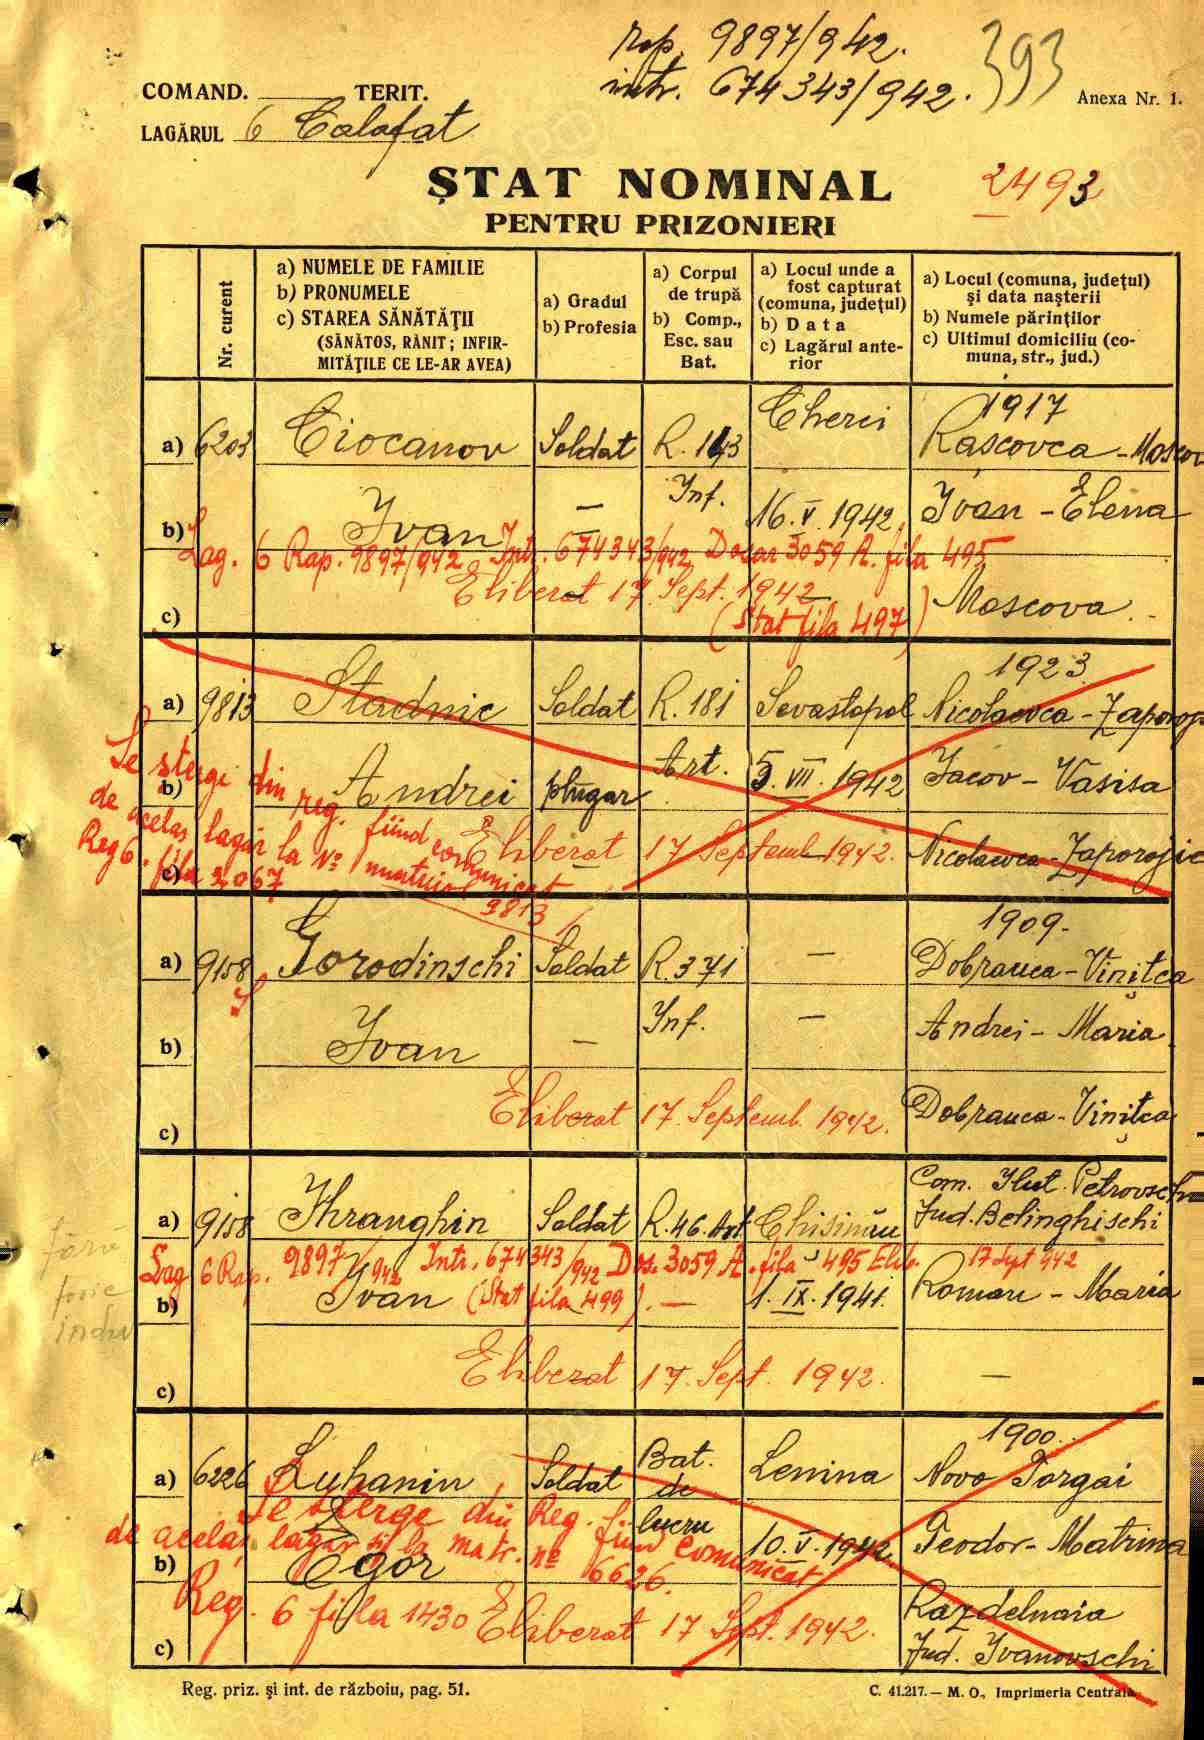 rap. 9897/942.
intr. 674343/942.
393
COMAND. ______ TERIT.
Anexa Nr. 1.
LAGĂRUL 6 Calafat
ȘTAT NOMINAL
2493
PENTRU PRIZONIERI
Nr. curent
a) NUMELE DE FAMILIE
b) PRONUMELE
c) STAREA SĂNĂTĂȚII
(SĂNĂTOS, RĂNIT; INFIR-
MITĂȚILE CE LE-AR AVEA)
a) Gradul
b) Profesia
a) Corpul
de trupă
b) Comp.,
Esc. sau
Bat.
a) Locul unde a
fost capturat
(comuna, județul)
b) Data
c) Lagărul ante-
rior
a) Locul (comuna, județul)
și data nașterii
b) Numele părinților
c) Ultimul domiciliu (co-
muna, str., jud.)
1917
a) 6203 Ciocanov Soldat R. 143 Cherci Rascovca - Moscov
Inf.
b) Ivan — 16. V. 1942. Ivan - Elena
Lag. 6 Rap. 9897/942 Intr. 674343/942 Dosar 3059 A. fila 495
Eliberat 17. Sept. 1942
(Stat fila 497)
c) Moscova
1923
a) 9813 Stadnic Soldat R. 181 Sevastopol Nicolaevca - Zaporoj
Art.
b) Andrei plugar 5. VII. 1942 Iacov - Vasisa
Se stergi din reg. fiind comunicat
de acelaș lagăr la № matricol 9813
Reg 6. fila 2067
Eliberat 17 Septemb 1942.
c) Nicolaevca - Zaporojie
1909.
a) 9158 Gorodinschi Soldat R. 371 — Dobrauca - Vinițca
Inf. —
b) Ivan — Andrei - Maria
Eliberat 17. Septemb. 1942.
c) Dobrauca - Vinițca
Com. Hut. Petrovschi
a) 9158 Hranghin Soldat R. 46. Art Chisinău Jud. Belinghischi
Lag 6 Rap. 9897/942 Intr. 674343/942 Dos. 3059 A. fila 495 Elib. 17 Sept 942
b) Ivan (Stat fila 499). — 1. IX. 1941. Roman - Maria
Eliberat 17. Sept. 1942.
c) —
1900.
a) 6226 Luhanin Soldat Bat. de lucru Lenina Novo Torgai
Se sterge din Reg. fiind comunicat
de acelaș lagăr și la matr. nº 6626.
b) Egor 10. V. 1942 Teodor - Matrina
Reg. 6 fila 1430 Eliberat 17 Sept. 1942.
Razdelnaia
c) Jud. Ivanovschi
Reg. priz. și int. de războiu, pag. 51.
C. 41.217. — M. O., Imprimeria Centrala.